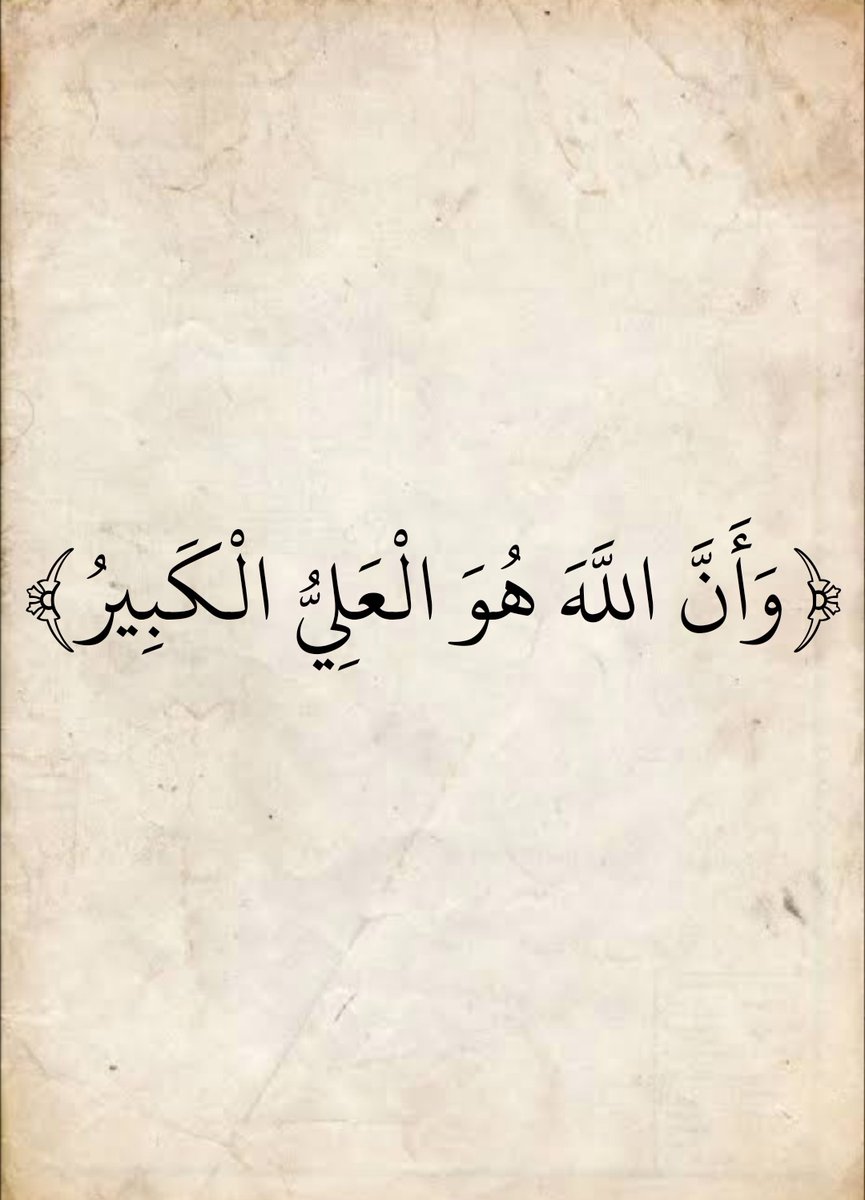 ﴿وَأَنَّ اللَّهَ هُوَ الْعَلِيُّ الْكَبِيرُ﴾